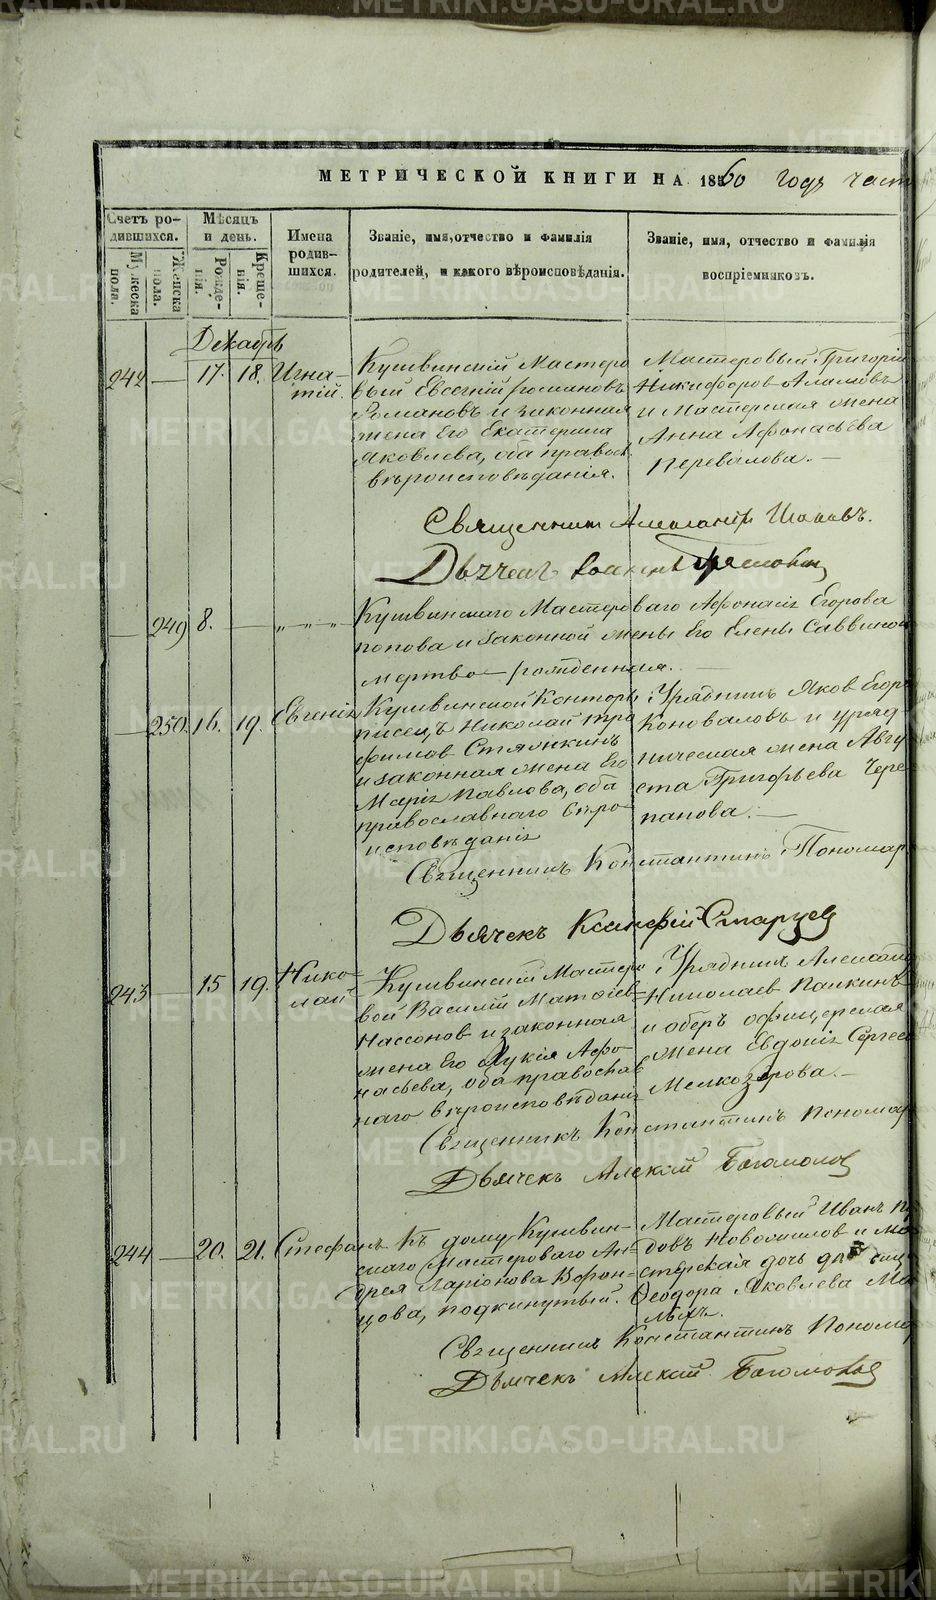 МЕТРИЧЕСКОЙ КНИГИ НА 1860 годъ част
Счетъ ро-
дившихся.
Мужеска
пола.
Женска
пола.
Мѣсяцъ
и день.
Рожде-
нія.
Креще-
нія.
Имена
родив-
шихся.
Званіе, имя, отчество и фамилія
родителей, и какого вѣроисповѣданія.
Званіе, имя, отчество и фамилія
воспріемниковъ.
Декабрь
242 — 17. 18. Игна-
тій.
Кушвинскій Мастеро
вый Евсегній Романовъ
Романовъ и законная
жена его Екатерина
Яковлева, оба правосл.
вѣроисповѣданія.
Мастеровый Григорій
Никифоровъ
и Мастерская жена
Анна Афонасьева
Перевалова. —
Священникъ Александръ
Дьячекъ Іоаннъ
— 249 8. — „ „ „
Кушвинскаго Мастероваго Афонасія Егорова
Попова и законной жены его Елены Саввиной
мертво-рожденная. —
— 250. 16. 19. Евгенія
Кушвинской Конторы
писецъ Николай Тро
фимовъ Стяжкинъ
и законная жена его
Марія Павлова, оба
православнаго вѣро-
исповѣданія
Урядникъ Яковъ Егор
Коноваловъ и уряд
ническая жена Авгу
ста Григорьева Чере
панова. —
Священникъ Константинъ Пономар
Дьячекъ Ксанфій Старцев
243 — 15 19. Нико-
лай
Кушвинскій Мастеро
вой Василій Матвіев
Нассонов и законная
жена его Лукія Афо-
насьева, оба православ
наго вѣроисповѣданія
Урядникъ Александ
Николаев Палкинъ
и оберъ офицерская
жена Евдокія Сергее
Мелкозёрова. —
Священникъ Константинъ Пономар
Дьячекъ Алексій Богомолов
244 — 20. 21. Стефанъ
Къ дому Кушвин-
скаго Мастероваго Ан-
дрея Ларіонова Ворон-
цова, подкинутый.
Мастеровый Иванъ
довъ Новосилов и Ма
стерская дочь девица
Феодора Яковлева
Священникъ Константинъ Пономар
Дьячекъ Алексій Богомолов
METRIKI.GASO-URAL.RU